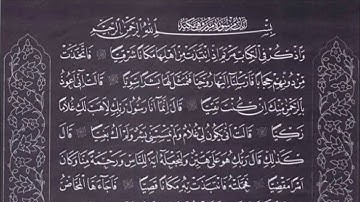 بسم الله الرحمن الرحيم
واذكر في الكتاب مريم إذ انتبذت من أهلها مكانا شرقيا فاتخذت
من دونهم حجابا فأرسلنا إليها روحنا فتمثل لها بشرا سويا قالت إني أعوذ
بالرحمن منك إن كنت تقيا قال إنما أنا رسول ربك لأهب لك غلاما
زكيا قالت أنى يكون لي غلام ولم يمسسني بشر ولم أك بغيا قال
كذلك قال ربك هو علي هين ولنجعله آية للناس ورحمة منا وكان
أمرا مقضيا فحملته فانتبذت به مكانا قصيا فأجاءها المخاض